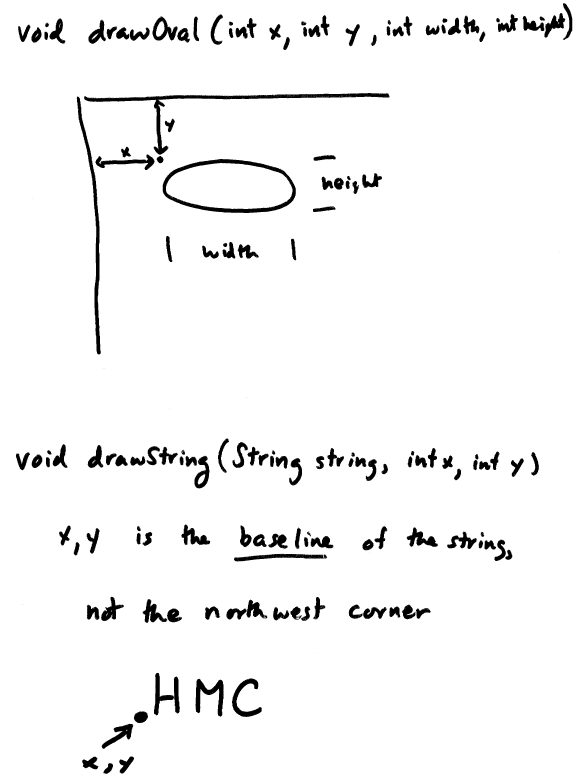 void drawOval (int x, int y, int width, int height)
y
x
height
width
void drawString (String string, int x, int y)
x, y is the baseline of the string,
not the northwest corner
HMC
x, y